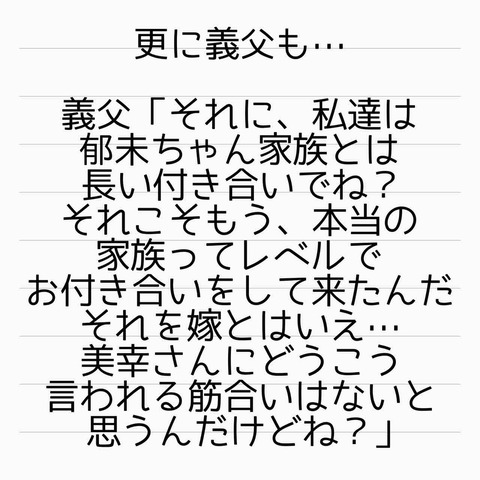 更に義父も…
義父「それに、私達は
郁未ちゃん家族とは
長い付き合いでね？
それこそもう、本当の
家族ってレベルで
お付き合いをして来たんだ
それを嫁とはいえ…
美幸さんにどうこう
言われる筋合いはないと
思うんだけどね？」